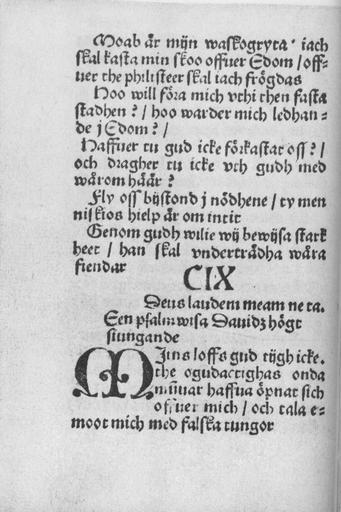 Moab är mijn waskogryta · iach
skal kasta min skoo offuer Edom / off-
uer the philisteer skal iach frögdas
Hoo will föra mich vthi then fasta
stadhen? / hoo warder mich ledhan=
de j Edom? /
Haffuer tu gud icke förkastat oss? /
och dragher tu icke vth gudh med
wårom häär?
Fly oss bijstond j nödhene / ty men
niskios hielp är om intit
Genom gudh wilie wij bewijsa stark
heet / han skal vnderträdha wåra
fiendar
CIX
Deus laudem meam ne ta.
Een psalm wisa Dauidz högt
siungande
Mijns loffs gud tijgh icke.
the ogudactighas onda
munnar haffua öpnat sich
offuer mich / och tala e=
moot mich med falska tungor